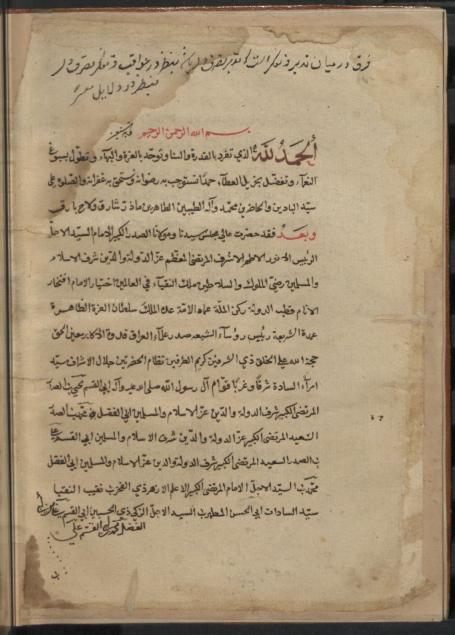 فرق در میان تدبر و تفکر آنست که تدبر تصرف دل بآن نظر در عواقب و تفکر تصرف دل
بنظر در دلایل
بسم الله الرحمن الرحيم وبه نستعين
الحمد لله الذي تفرد بالقدرة والسنا وتوحد بالعزة والبهاء وتطول بسبوغ
النعماء وتفضل بجزيل العطاء حمدا نستوجب به رضوانه ونستحق به غفرانه والصلوة على
سيد البادين والحاضرين محمد وآله الطيبين الطاهرين ما ذر شارق ولاح بارق
وبعد فقد حضرت عالي مجلس سيدنا ومولانا الصدر الكبير الامام السيد الاجل
الرئيس الاطهر الاشرف المرتضى المعظم عز الدولة والدين شرف الاسلام
والمسلمين رضي الملوك والسلاطين ملك النقباء في العالمين اختيار الامام افتخار
الانام قطب الدولة ركن الملة عماد الامة عمدة الملك سلطان العترة الطاهرة
عمدة الشريعة رئيس رؤساء الشيعة صدر علماء العراق قدوة الاكابر معين الحق
حجة الله على الخلق ذي الشرفين كريم الطرفين نظام الحضرتين جلال الاشراف سيد
امراء السادة شرقا وغربا قوام آل رسول الله صلى الله عليه وآله ابي القسم يحيى بن الصدر
المرتضى الكبير شرف الدولة والدين عز الاسلام والمسلمين ابي الفضل محمد بن الصدر
السعيد المرتضى الكبير عز الدولة والدين شرف الاسلام والمسلمين ابي القسم علي
بن الصدر السعيد المرتضى الكبير شرف الدولة والدين عز الاسلام والمسلمين ابي الفضل
محمد بن السيد الاجل الامام المرتضى الكبير الاعلم الازهد ذي الفخرين نقيب النقباء
سيد السادات ابي الحسن المطهر بن السيد الاجل الزكي ذي الحسبين ابي القسم علي بن
الفضل محمد بن ابي القسم علي